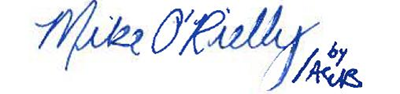 Mike O'Rielly
by
/ACWB